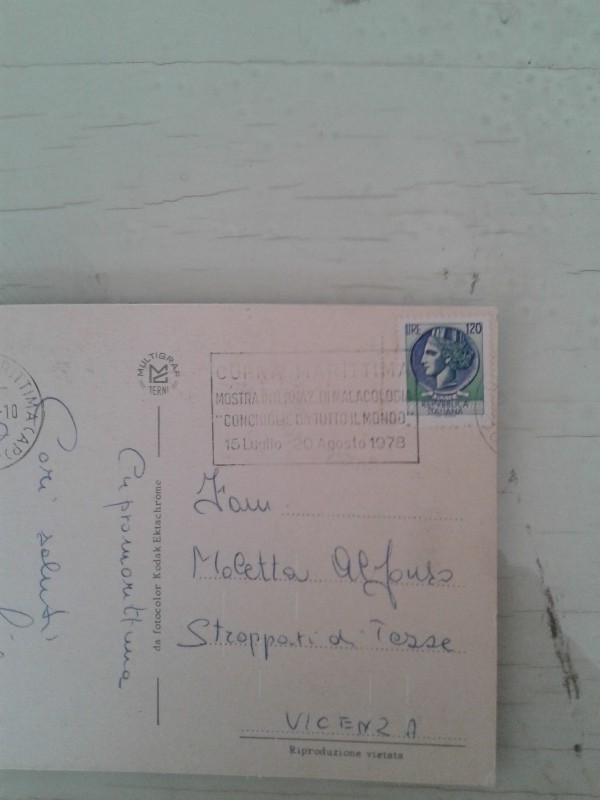 RITTIMA (AP)
-10
MULTIGRAF
TERNI
CUPRA MARITTIMA
MOSTRA INTERNAZ. DI MALACOLOGIA
"CONCHIGLIE DA TUTTO IL MONDO"
15 Luglio - 20 Agosto 1978
LIRE 120
REPUBBLICA
ITALIANA
Cari saluti
Cupramarittima
da fotocolor Kodak Ektachrome
Fam
Moletta Alfonso
Stroppari di Tezze
VICENZA
Riproduzione vietata